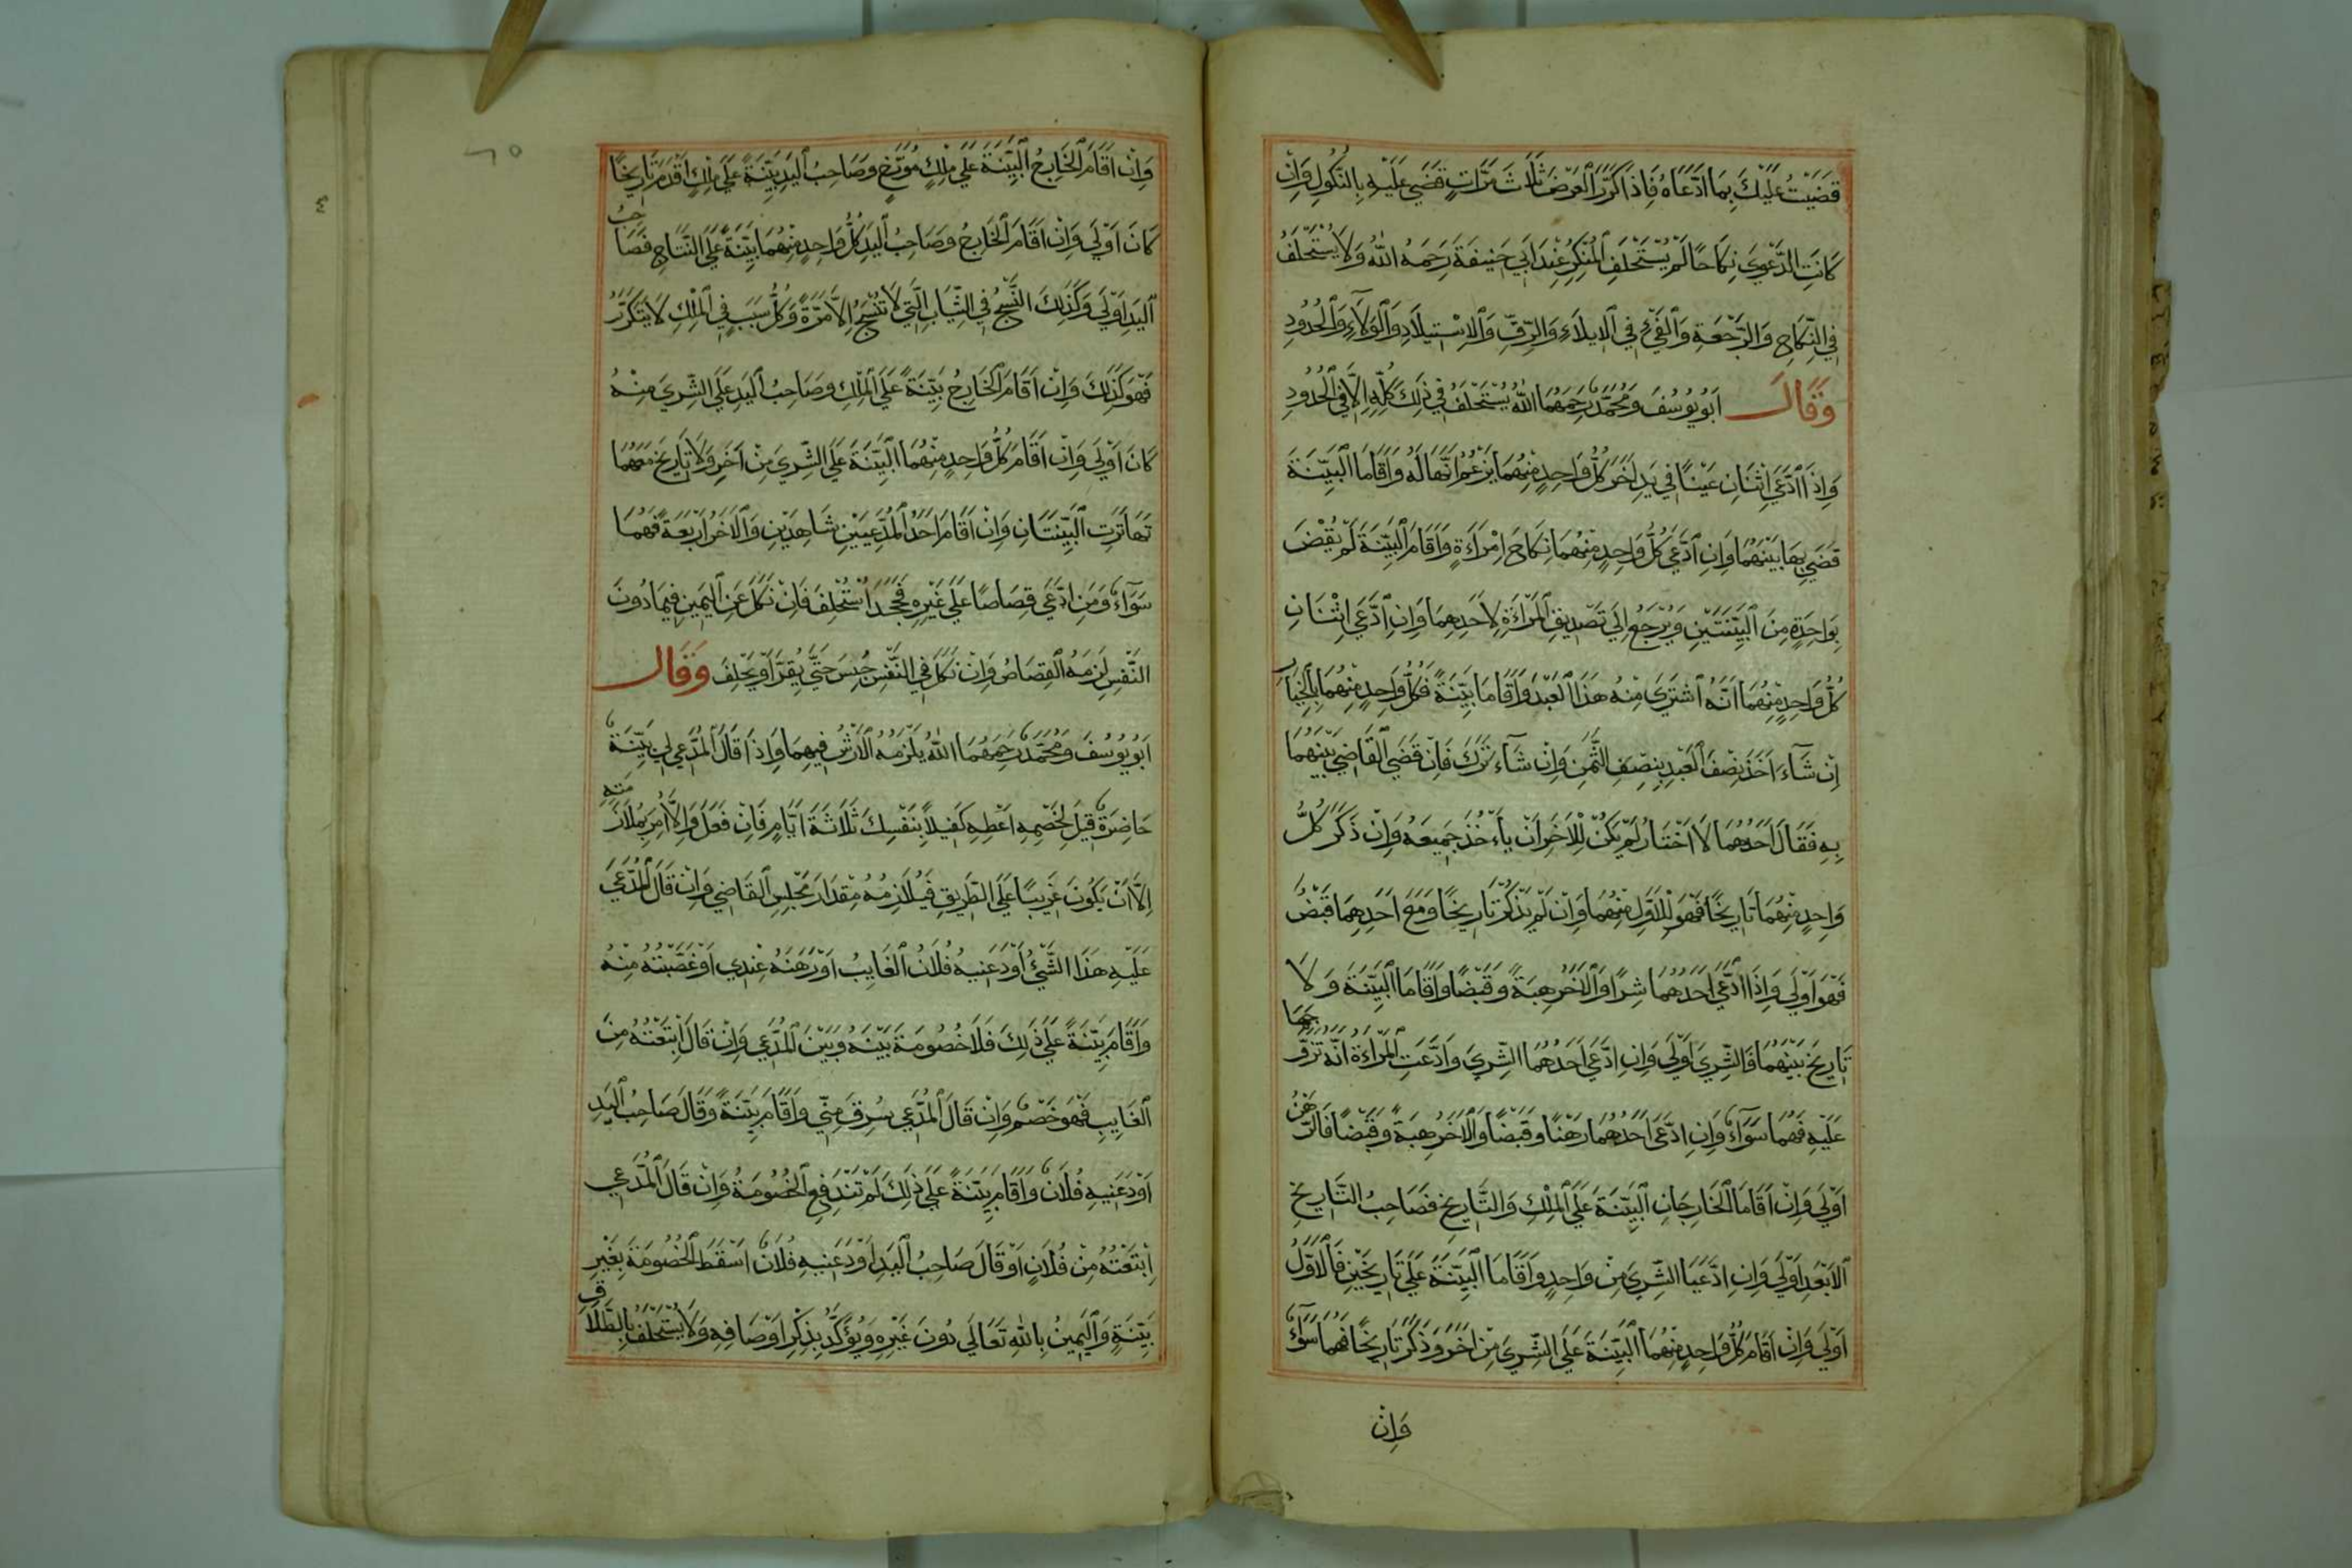 قَضَيْتُ عَلَيْكَ بِمَا ادَّعَاهُ فَاِذَا كَرَّرَ الْعَرْضَ ثَلَاثَ مَرَّاتٍ قَضَى عَلَيْهِ بِالنُّكُولِ وَاِنْ
كَانَتِ الدَّعْوَى نِكَاحًا لَمْ يُسْتَحْلَفِ الْمُنْكِرُ عِنْدَ اَبِي حَنِيفَةَ رَحِمَهُ اللّٰهُ وَلَا يُسْتَحْلَفُ
فِي النِّكَاحِ وَالرَّجْعَةِ وَالْفَيْءِ فِي الْاِيلَاءِ وَالرِّقِّ وَالْاِسْتِيلَادِ وَالْوَلَاءِ وَالْحُدُودِ
وَقَالَ اَبُو يُوسُفَ وَمُحَمَّدٌ رَحِمَهُمَا اللّٰهُ يُسْتَحْلَفُ فِي ذٰلِكَ كُلِّهِ اِلَّا فِي الْحُدُودِ
وَاِذَا ادَّعَى اثْنَانِ عَيْنًا فِي يَدِ اٰخَرَ كُلُّ وَاحِدٍ مِنْهُمَا يَزْعُمُ اَنَّهَا لَهُ وَاَقَامَا الْبَيِّنَةَ
قَضَى بِهَا بَيْنَهُمَا وَاِنِ ادَّعَى كُلُّ وَاحِدٍ مِنْهُمَا نِكَاحَ امْرَاَةٍ وَاَقَامَ الْبَيِّنَةَ لَمْ يُقْضَ
بِوَاحِدَةٍ مِنَ الْبَيِّنَتَيْنِ وَيُرْجَعُ اِلَى تَصْدِيقِ الْمَرْاَةِ لِاَحَدِهِمَا وَاِنِ ادَّعَى اثْنَانِ
كُلُّ وَاحِدٍ مِنْهُمَا اَنَّهُ اشْتَرَى مِنْهُ هٰذَا الْعَبْدَ وَاَقَامَا بَيِّنَةً فَكُلُّ وَاحِدٍ مِنْهُمَا بِالْخِيَارِ
اِنْ شَاءَ اَخَذَ نِصْفَ الْعَبْدِ بِنِصْفِ الثَّمَنِ وَاِنْ شَاءَ تَرَكَ فَاِنْ قَضَى الْقَاضِي بَيْنَهُمَا
بِهِ فَقَالَ اَحَدُهُمَا لَا اَخْتَارُ لَمْ يَكُنْ لِلْاٰخَرِ اَنْ يَاْخُذَ جَمِيعَهُ وَاِنْ ذَكَرَ كُلُّ
وَاحِدٍ مِنْهُمَا تَارِيخًا فَهُوَ لِلْاَوَّلِ مِنْهُمَا وَاِنْ لَمْ يَذْكُرْ تَارِيخًا وَمَعَ اَحَدِهِمَا قَبْضٌ
فَهُوَ اَوْلَى وَاِذَا ادَّعَى اَحَدُهُمَا شِرًا وَالْاٰخَرُ هِبَةً وَقَبْضًا وَاَقَامَا الْبَيِّنَةَ وَلَا
تَارِيخَ بَيْنَهُمَا فَالشِّرَى اَوْلَى وَاِنِ ادَّعَى اَحَدُهُمَا الشِّرَى وَادَّعَتِ الْمَرْاَةُ اَنَّهُ تَزَوَّجَهَا
عَلَيْهِ فَهُمَا سَوَاءٌ وَاِنِ ادَّعَى اَحَدُهُمَا رَهْنًا وَقَبْضًا وَالْاٰخَرُ هِبَةً وَقَبْضًا فَالرَّهْنُ
اَوْلَى وَاِنْ اَقَامَا الْخَارِجَانِ الْبَيِّنَةَ عَلَى الْمِلْكِ وَالتَّارِيخِ فَصَاحِبُ التَّارِيخِ
الْاَبْعَدِ اَوْلَى وَاِنِ ادَّعَيَا الشِّرَى مِنْ وَاحِدٍ وَاَقَامَا الْبَيِّنَةَ عَلَى تَارِيخَيْنِ فَالْاَوَّلُ
اَوْلَى وَاِنْ اَقَامَ كُلُّ وَاحِدٍ مِنْهُمَا الْبَيِّنَةَ عَلَى الشِّرَى مِنْ اٰخَرَ وَذَكَرَ تَارِيخًا فَهُمَا سَوَاءٌ
وَاِنْ
٦٥
وَاِنْ اَقَامَ الْخَارِجُ الْبَيِّنَةَ عَلَى مِلْكٍ مُوَرَّخٍ وَصَاحِبُ الْيَدِ بَيِّنَةً عَلَى مِلْكٍ اَقْدَمَ تَارِيخًا
كَانَ اَوْلَى وَاِنْ اَقَامَ الْخَارِجُ وَصَاحِبُ الْيَدِ كُلُّ وَاحِدٍ مِنْهُمَا بَيِّنَةً عَلَى النَّتَاجِ فَصَاحِبُ
الْيَدِ اَوْلَى وَكَذٰلِكَ النَّسْجُ فِي الثِّيَابِ الَّتِي لَا تُنْسَجُ اِلَّا مَرَّةً وَكُلُّ سَبَبٍ فِي الْمِلْكِ لَا يَتَكَرَّرُ
فَهُوَ كَذٰلِكَ وَاِنْ اَقَامَ الْخَارِجُ بَيِّنَةً عَلَى الْمِلْكِ وَصَاحِبُ الْيَدِ عَلَى الشِّرَى مِنْهُ
كَانَ اَوْلَى وَاِنْ اَقَامَ كُلُّ وَاحِدٍ مِنْهُمَا الْبَيِّنَةَ عَلَى الشِّرَى مِنْ اٰخَرِ وَلَا تَارِيخَ مَعَهُمَا
تَهَاتَرَتِ الْبَيِّنَتَانِ وَاِنْ اَقَامَ اَحَدُ الْمُدَّعِيَيْنِ شَاهِدَيْنِ وَالْاٰخَرُ اَرْبَعَةً فَهُمَا
سَوَاءٌ وَمَنِ ادَّعَى قِصَاصًا عَلَى غَيْرِهِ فَجَحَدَ اسْتُحْلِفَ فَاِنْ نَكَلَ عَنِ الْيَمِينِ فِيمَا دُونَ
النَّفْسِ لَزِمَهُ الْقِصَاصُ وَاِنْ نَكَلَ فِي النَّفْسِ حُبِسَ حَتَّى يُقِرَّ اَوْ يَحْلِفَ وَقَالَ
اَبُو يُوسُفَ وَمُحَمَّدٌ رَحِمَهُمَا اللّٰهُ يَلْزَمُهُ الْاَرْشُ فِيهِمَا وَاِذَا قَالَ الْمُدَّعِي لِي بَيِّنَةٌ
حَاضِرَةٌ قِيلَ لِخَصْمِهِ اَعْطِهِ كَفِيلًا بِنَفْسِكَ ثَلَاثَةَ اَيَّامٍ فَاِنْ فَعَلَ وَاِلَّا اُمِرَ بِمُلَازَمَتِهِ
اِلَّا اَنْ يَكُونَ غَرِيبًا عَلَى الطَّرِيقِ فَيُلَازِمُهُ مِقْدَارَ مَجْلِسِ الْقَاضِي وَاِنْ قَالَ الْمُدَّعَى
عَلَيْهِ هٰذَا الشَّيْءُ اَوْدَعَنِيهِ فُلَانُ الْغَايِبُ اَوْ رَهَنَهُ عِنْدِي اَوْ غَصَبْتُهُ مِنْهُ
وَاَقَامَ بَيِّنَةً عَلَى ذٰلِكَ فَلَا خُصُومَةَ بَيْنَهُ وَبَيْنَ الْمُدَّعِي وَاِنْ قَالَ ابْتَعْتُهُ مِنَ
الْغَايِبِ فَهُوَ خَصْمٌ وَاِنْ قَالَ الْمُدَّعِي سُرِقَ مِنِّي وَاَقَامَ بَيِّنَةً وَقَالَ صَاحِبُ الْيَدِ
اَوْدَعَنِيهِ فُلَانٌ وَاَقَامَ بَيِّنَةً عَلَى ذٰلِكَ لَمْ تَنْدَفِعِ الْخُصُومَةُ وَاِنْ قَالَ الْمُدَّعِي
اِبْتَعْتُهُ مِنْ فُلَانٍ اَوْ قَالَ صَاحِبُ الْيَدِ اَوْدَعَنِيهِ فُلَانٌ اَسْقَطَ الْخُصُومَةَ بِغَيْرِ
بَيِّنَةٍ وَالْيَمِينُ بِاللّٰهِ تَعَالَى دُونَ غَيْرِهِ وَيُؤَكَّدُ بِذِكْرِ اَوْصَافِهِ وَلَا يُسْتَحْلَفُ بِالطَّلَاقِ